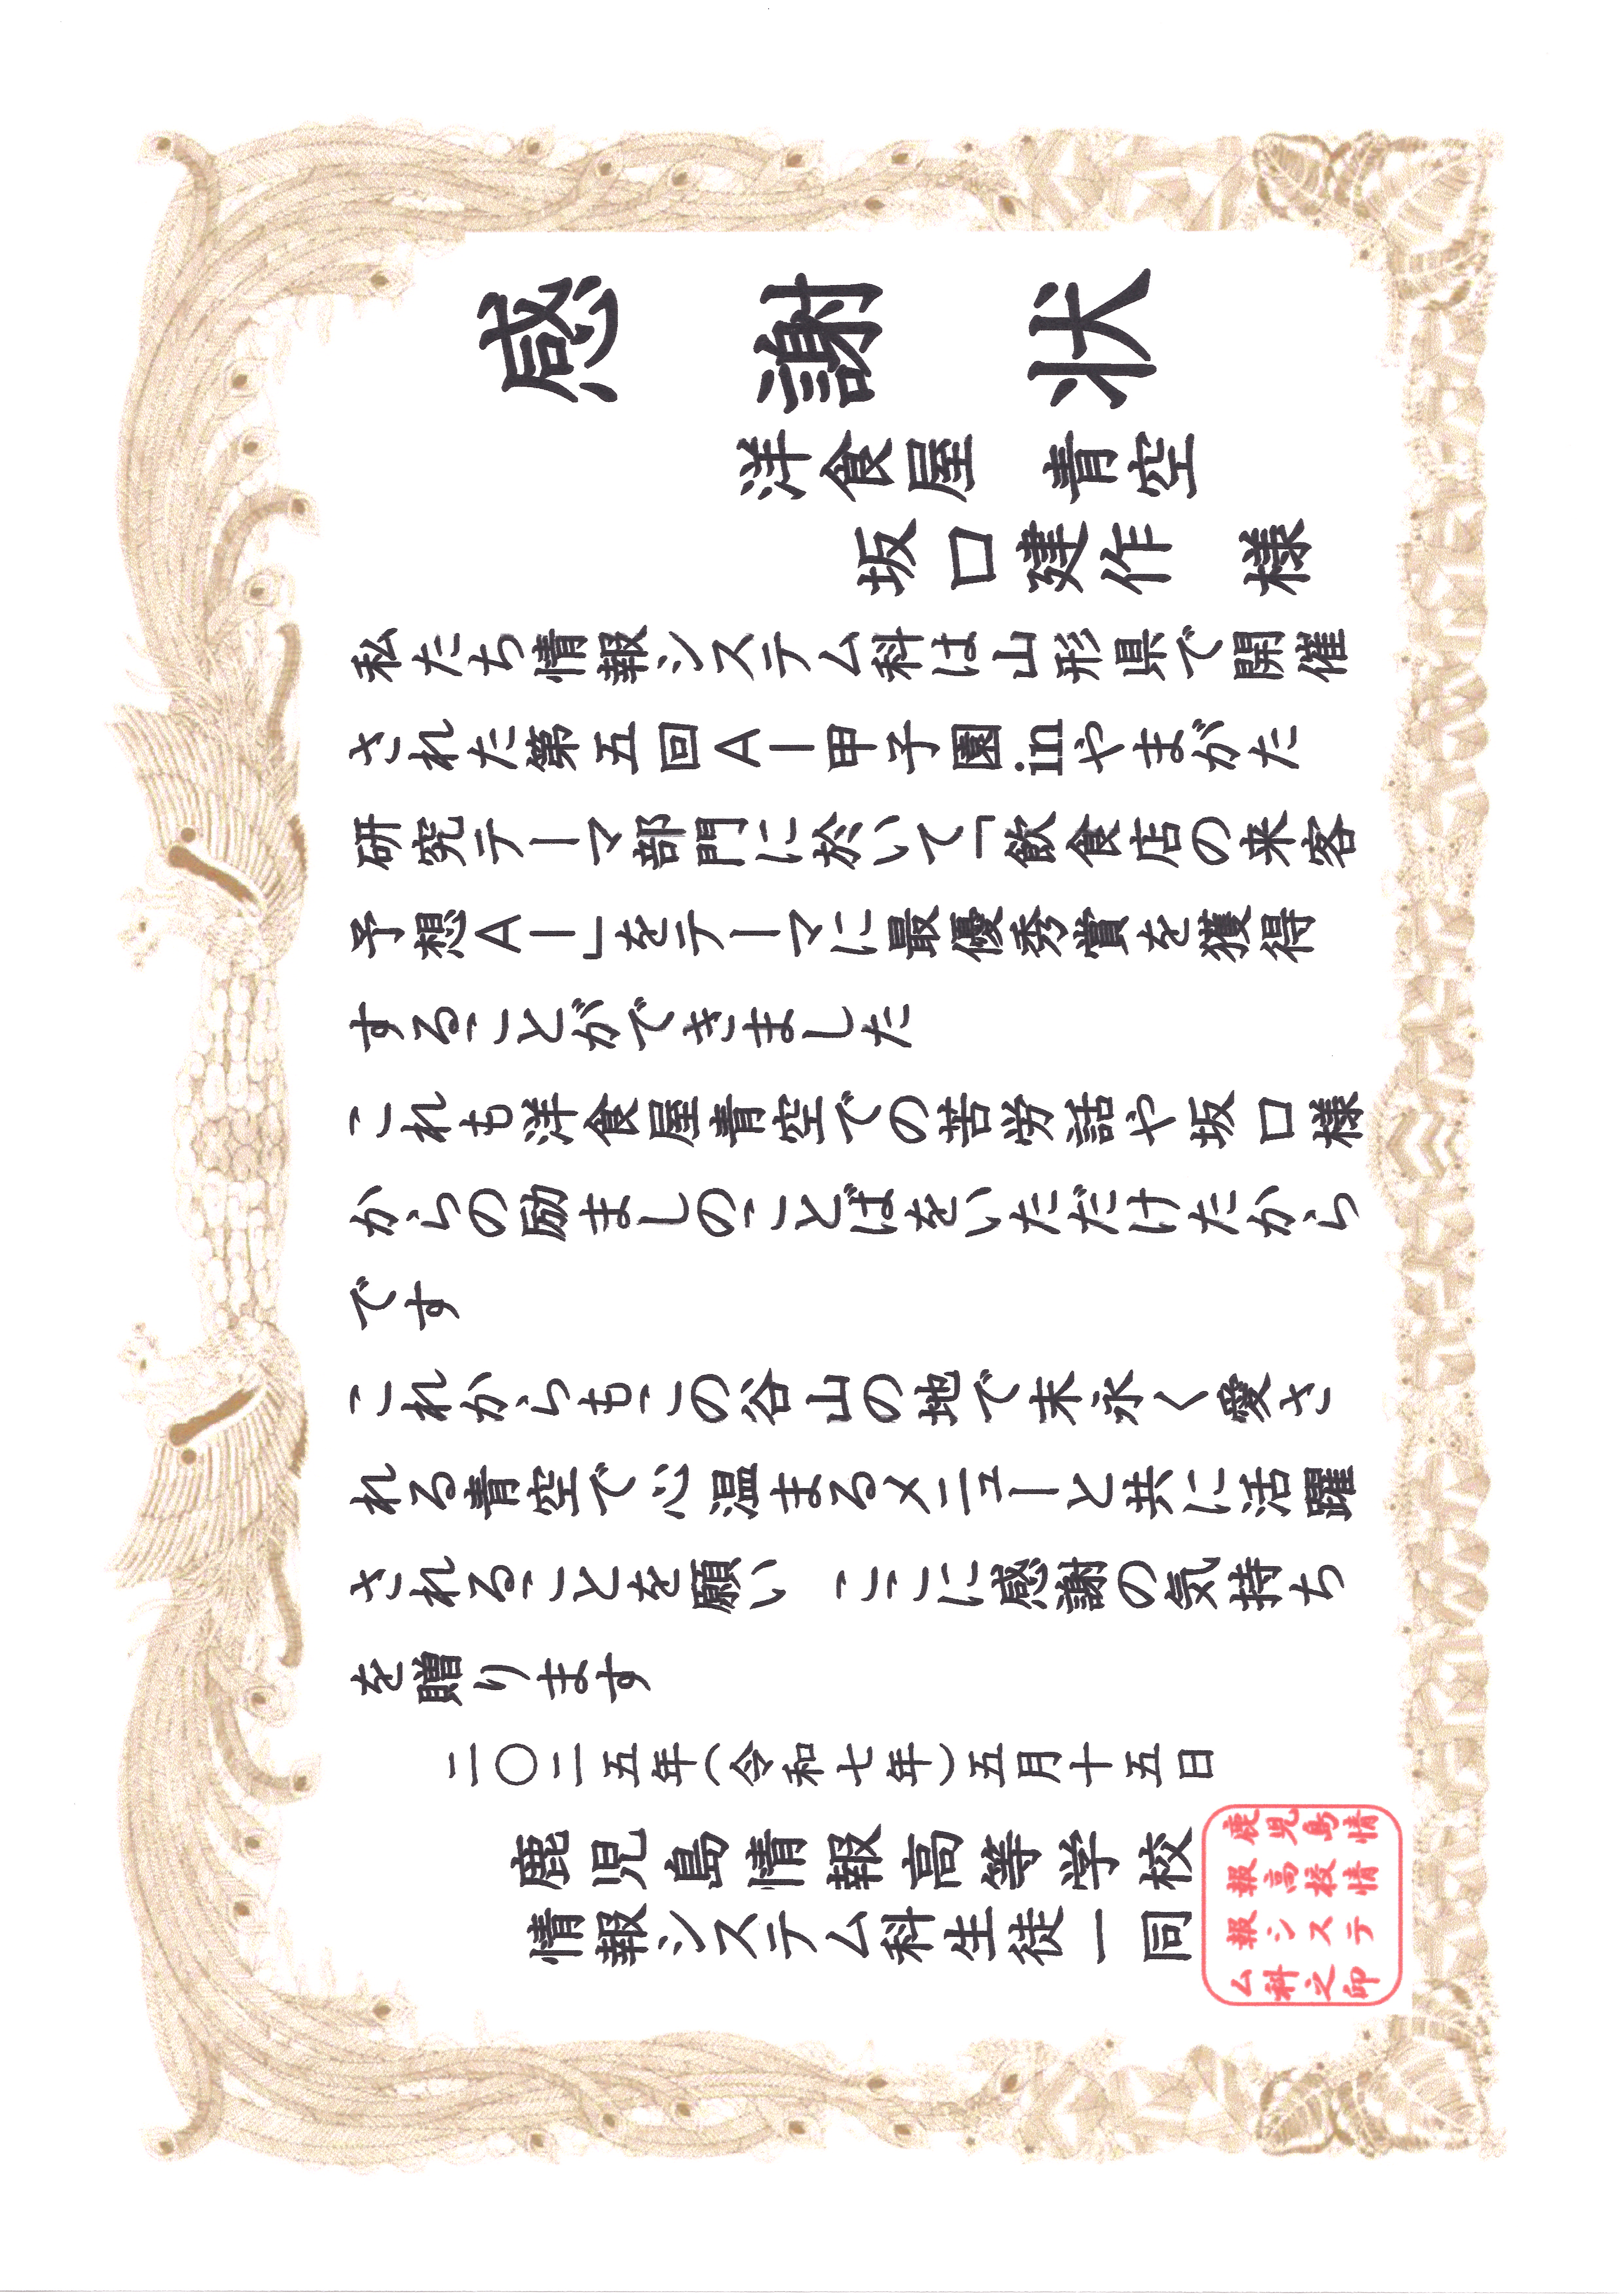 感謝状
洋食屋　青空
坂口建作　様
私たち情報システム科は山形県で開催
された第五回ＡＩ甲子園inやまがた
研究テーマ部門に於いて「飲食店の来客
予想ＡＩ」をテーマに最優秀賞を獲得
することができました
これも洋食屋青空での苦労話や坂口様
からの励ましのことばをいただけたから
です
これからもこの谷山の地で末永く愛さ
れる青空で心温まるメニューと共に活躍
されることを願い　ここに感謝の気持ち
を贈ります
二〇二五年(令和七年)五月十五日
鹿児島情報高等学校
情報システム科生徒一同
鹿児島情
報高校情
報システ
ム科之印